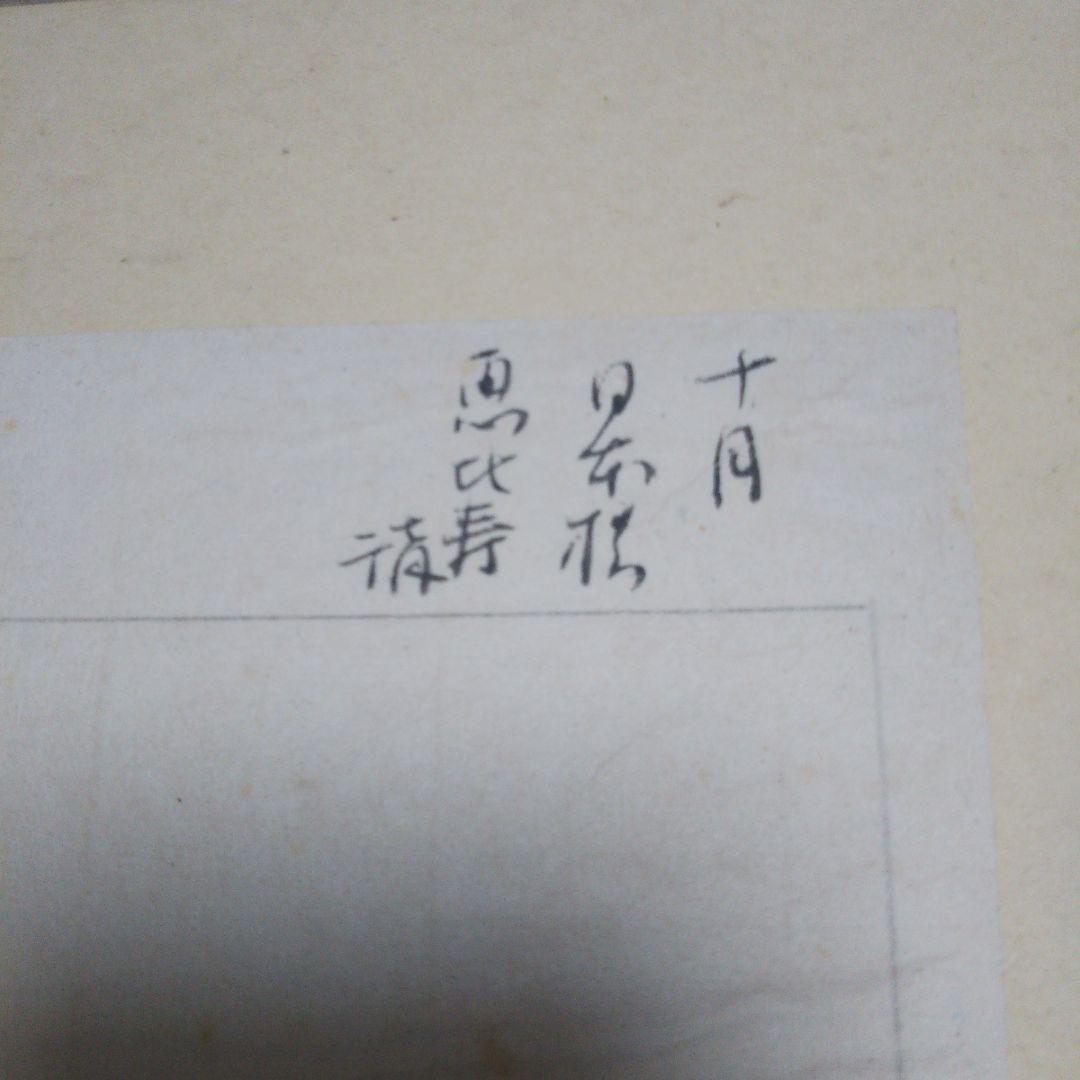 十月
日本橋
恵比寿講